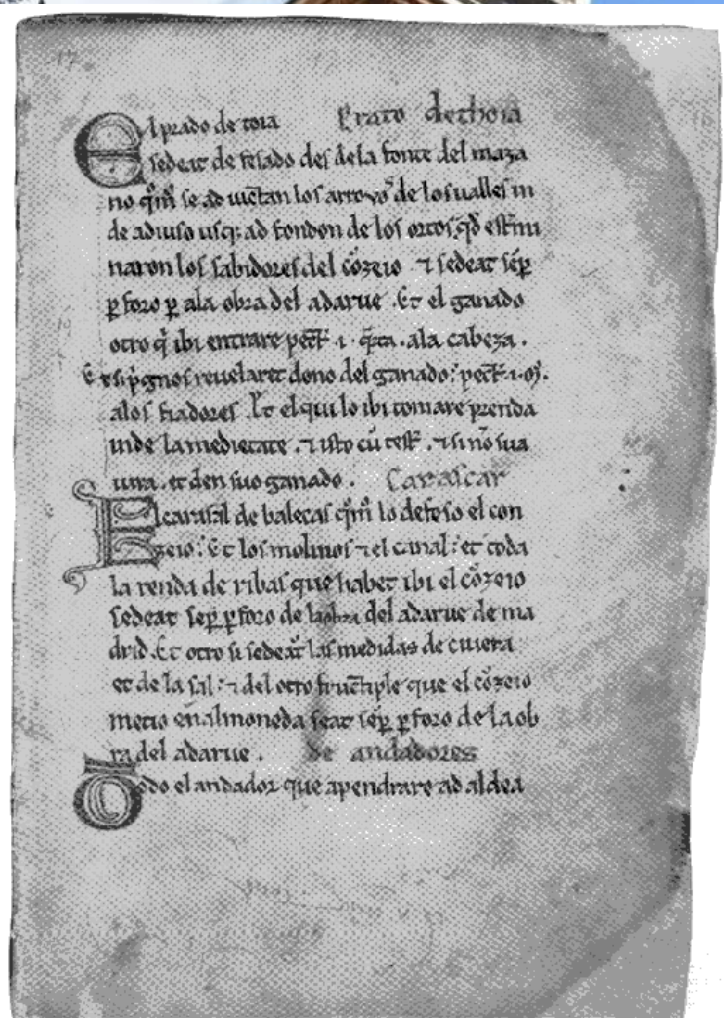 17
El prado de toia Prato de thoia
sedeat defesado des de la fonte del maza
no qm se aduertan los arroyos de los ualles in
de adiuso usq; ad fondon de los ortos; qd
naron los sabidores del cozeio . ⁊ sedeat sep
p foro p ala obra del adarue . Et el ganado
otro q ibi entrare pect . ı . qrta . ala cabeza .
Et si pignos reuelaret dono del ganado : pect . ı . 
alos fiadores . Et el qui lo ibi tomare prenda
inde la medietate . ⁊ isto cu test . ⁊ si no sua
iura . et den suo ganado . Carascar
El carasal de balecas qm lo defeso el con
zeio : Et los molinos ⁊ el canal : et toda
la renda de ribas que habet ibi el cozeio
sedeat sep p foro de la obra del adarue de ma
drid . Et otro si sedeat las medidas de ciuera
et de la sal : ⁊ del otro que el cozeio
metio en almoneda seat sep p foro de la ob
ra del adarue . de andadores
Todo el andador que apendrare ad aldea